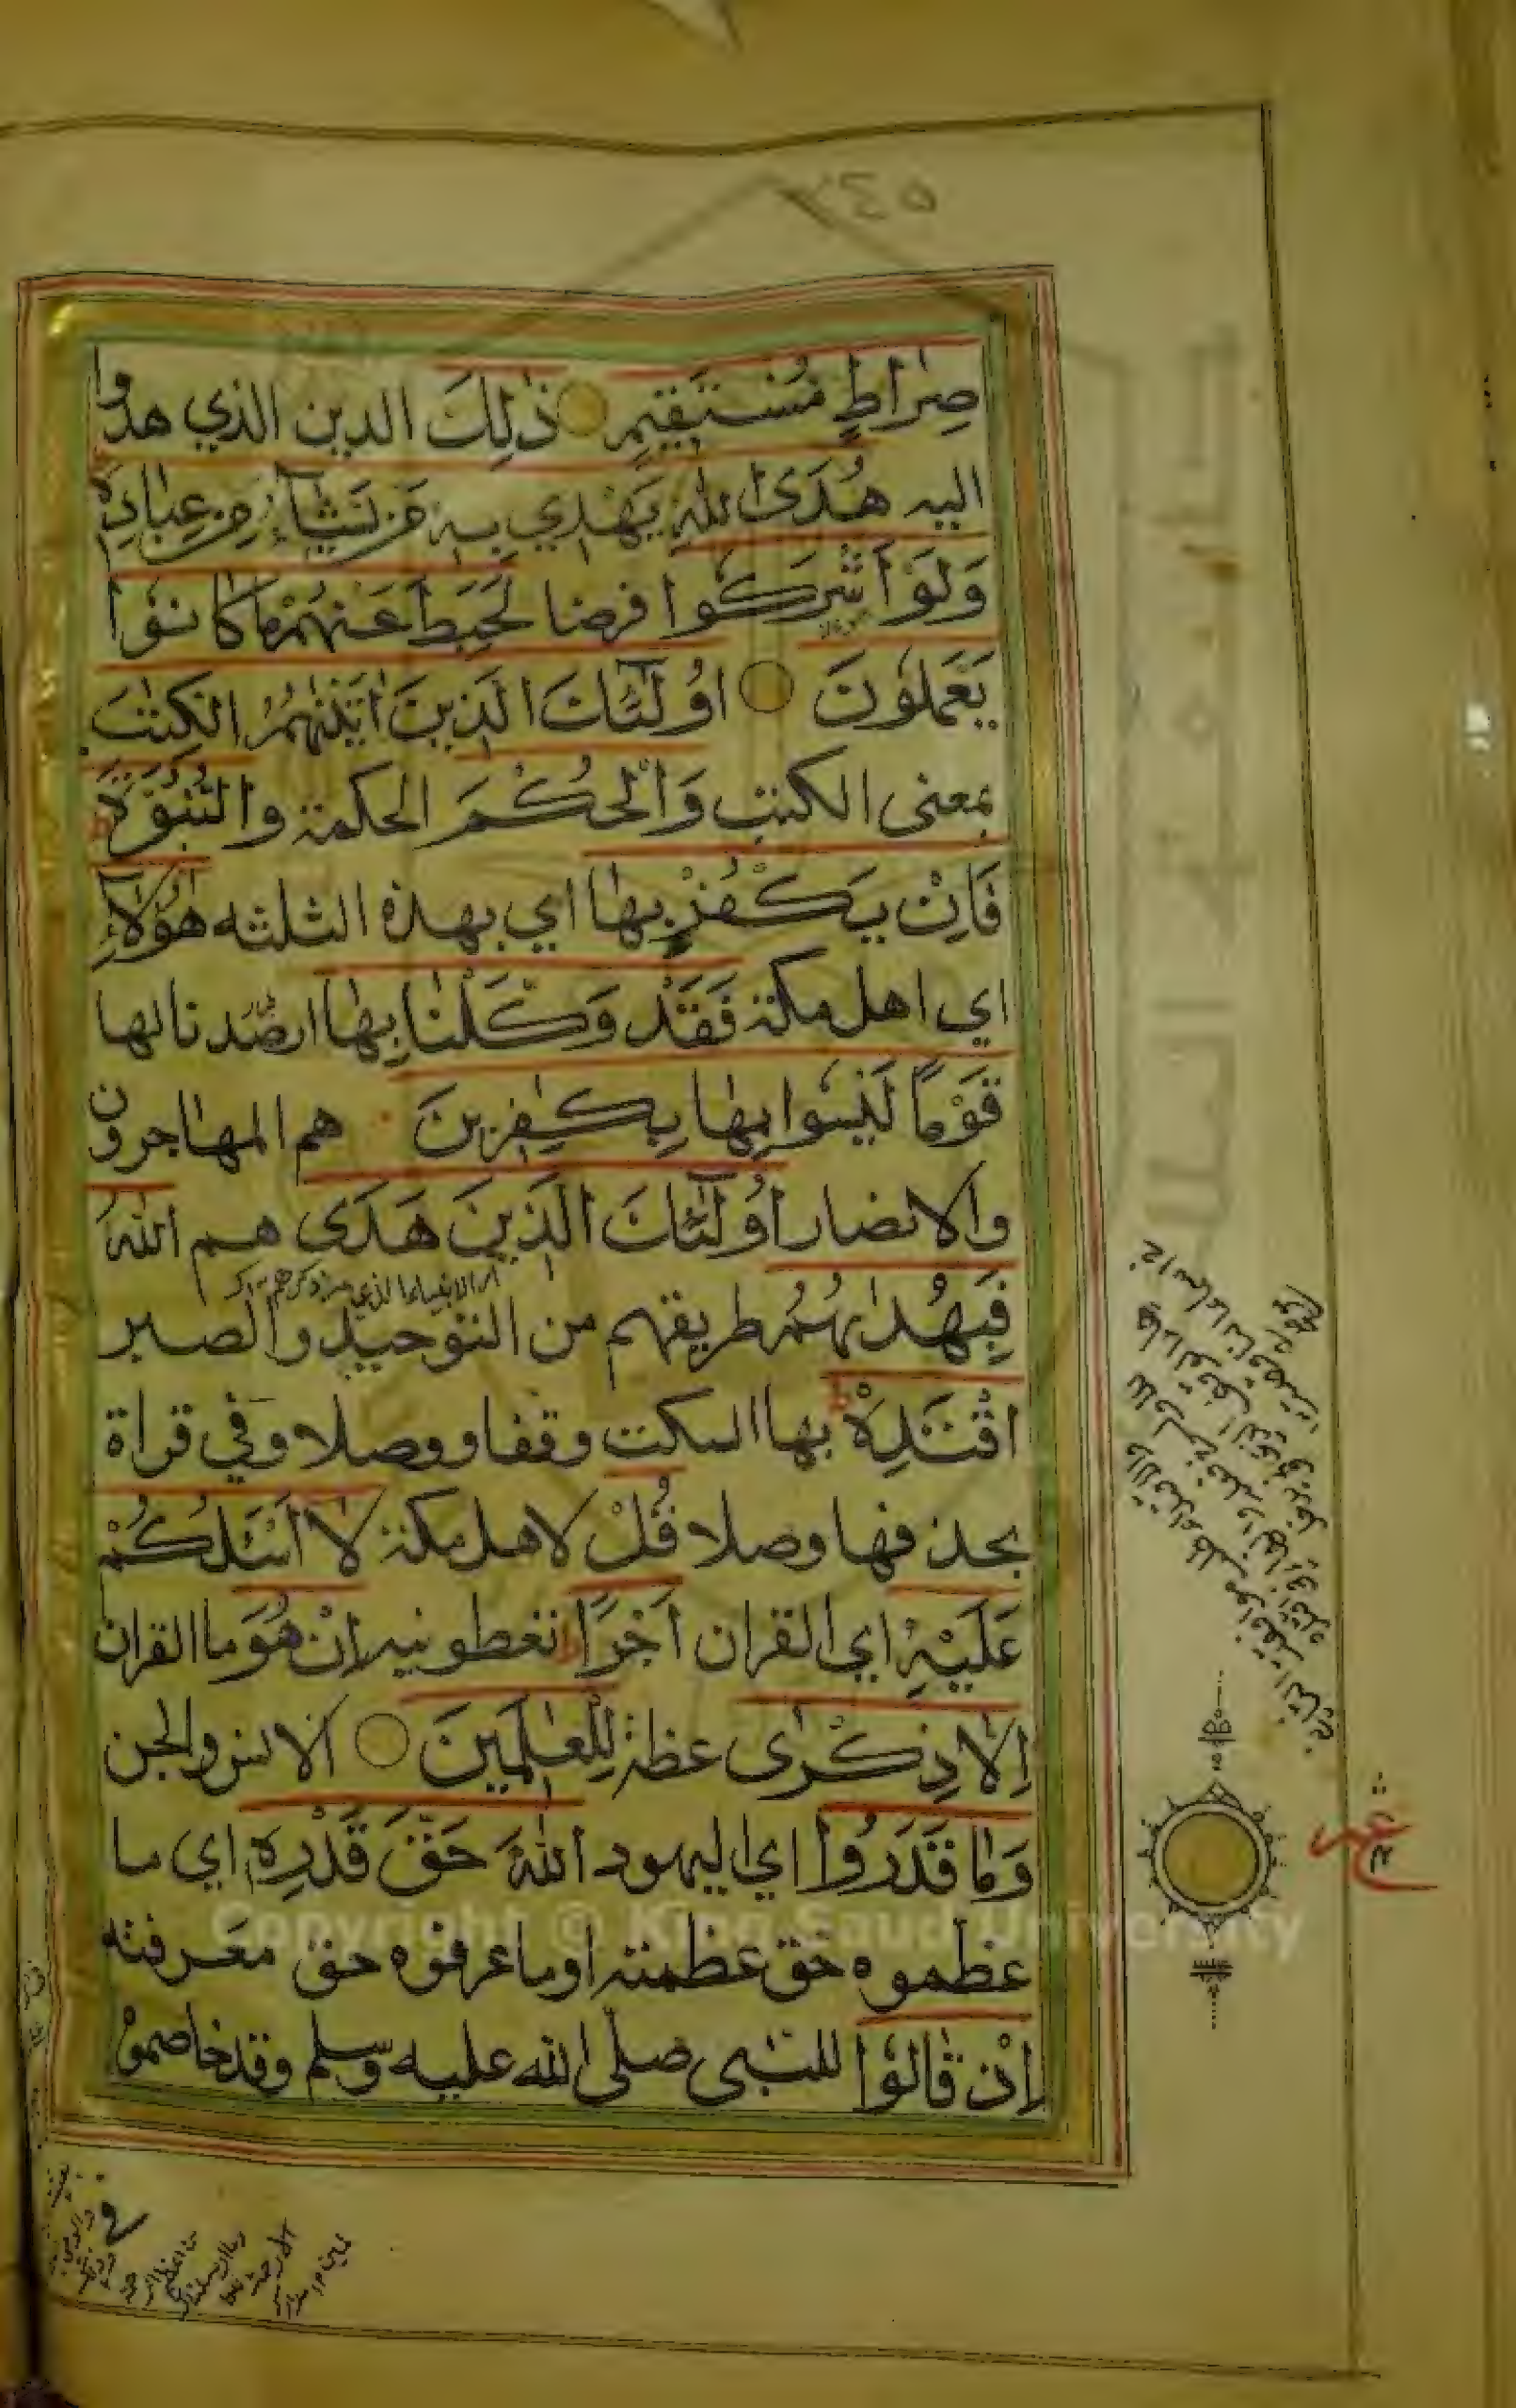 صِرَاطٍ مُسْتَقِيمٍ ذٰلِكَ الدين الذي هدوا
اليه هُدَى اللّٰهِ يَهْدِي بِهِ مَنْ يَشَآءُ مِنْ عِبَادِهٖ
وَلَوْ أَشْرَكُوا فرضا لَحَبِطَ عَنْهُمْ مَا كَانُوا
يَعْمَلُونَ اُولٰٓئِكَ الَّذِينَ اٰتَيْنٰهُمُ الْكِتٰبَ
بمعنى الكتب وَالْحُكْمَ الحكمة وَالنُّبُوَّةَ ط
فَاِنْ يَكْفُرْ بِهَا اي بهذه الثلثه هٰٓؤُلَآءِ
اي اهل مكة فَقَدْ وَكَّلْنَا بِهَا ارصدنا لها
قَوْمًا لَيْسُوا بِهَا بِكٰفِرِينَ هم المهاجرون
والانصار اُولٰٓئِكَ الَّذِينَ هَدَى هم اللّٰهُ
فَبِهُدٰىهُمُ طريقهم من التوحيد والصبر
اقْتَدِهْ ط بها السكت وقفا ووصلا وفي قراة
بحذفها وصلا قُلْ لاهل مكة لَا اَسْئَلُكُمْ
عَلَيْهِ اي القران اَجْرًا ط تعطونيه اِنْ هُوَ ما القران
اِلَّا ذِكْرٰى عظة لِلْعٰلَمِينَ الانس والجن
وَمَا قَدَرُوا اي اليهود اللّٰهَ حَقَّ قَدْرِهٖ اي ما
عظموه حق عظمته او ما عرفوه حق معرفته
اِذْ قَالُوا للنبى صلى الله عليه وسلم وقد خاصموه
Copyright © King Saud University